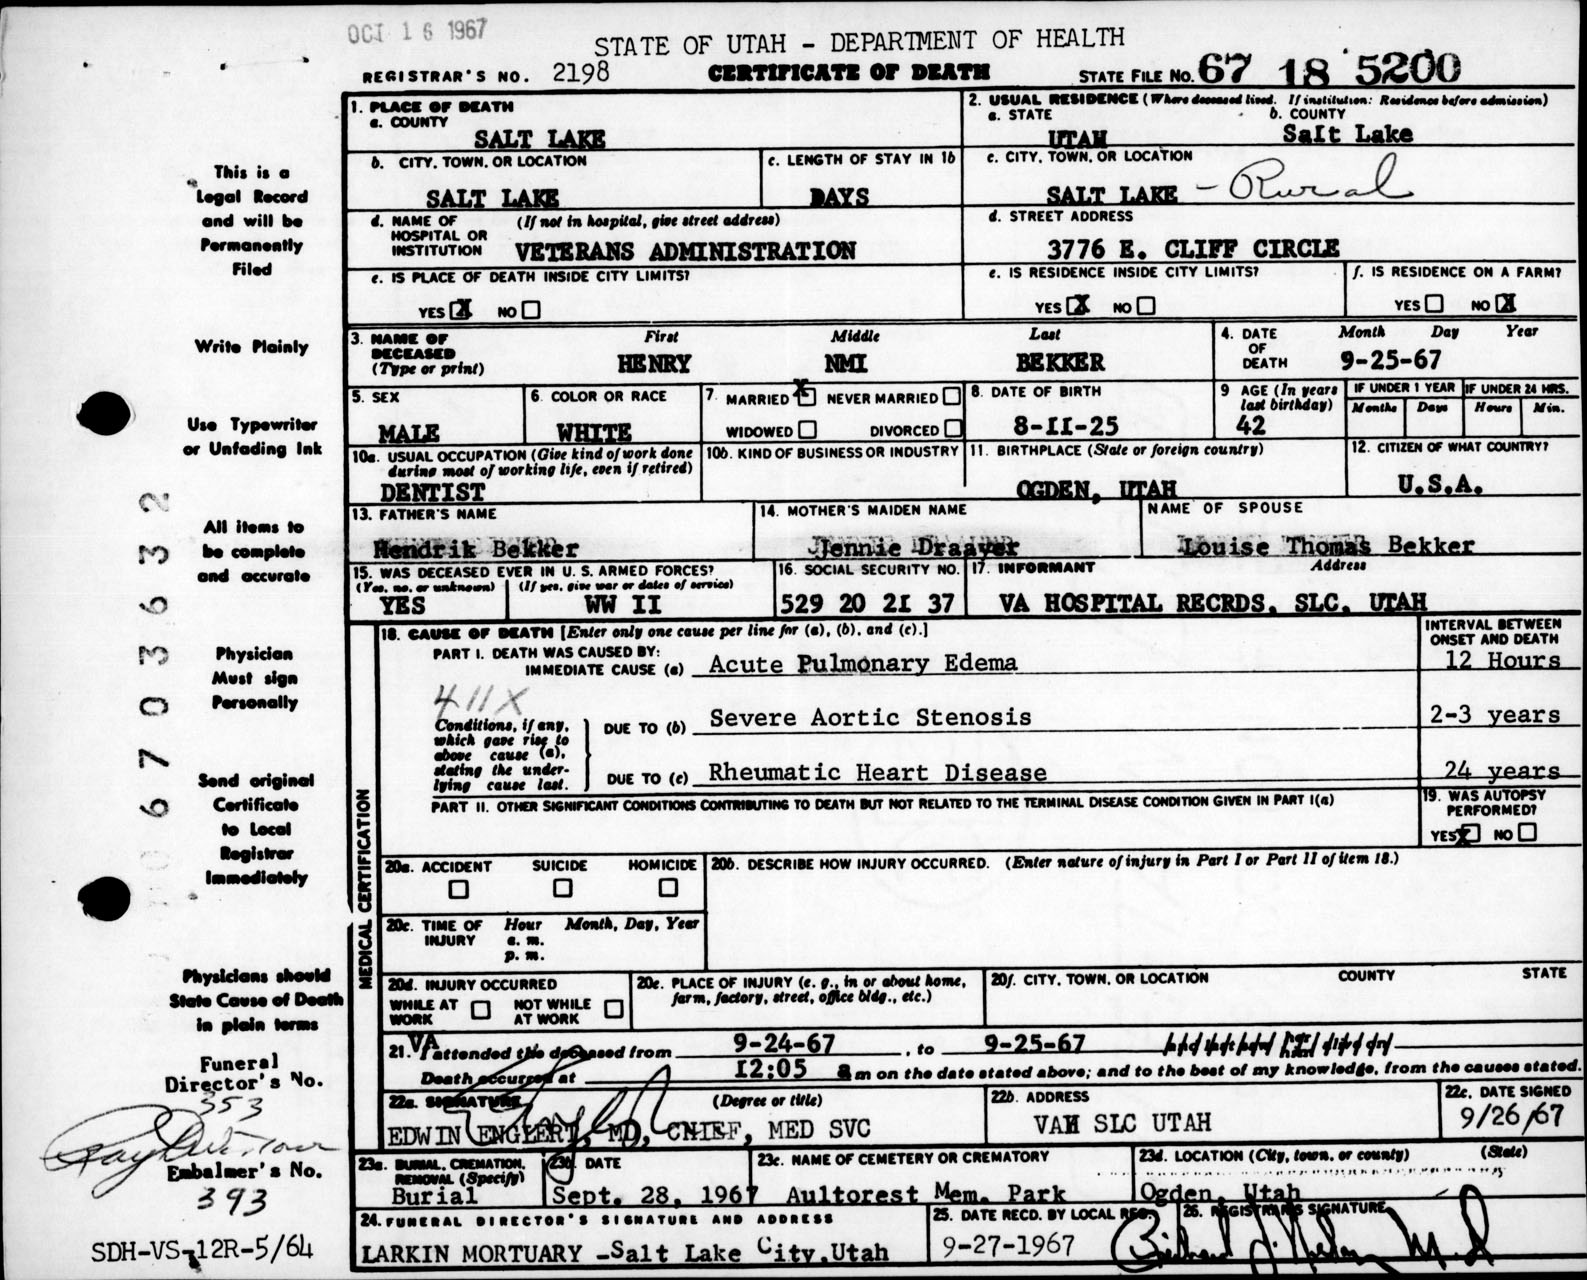 OCT 16 1967
STATE OF UTAH - DEPARTMENT OF HEALTH
REGISTRAR'S NO. 2198 CERTIFICATE OF DEATH STATE FILE NO. 67 18 5200
This is a
Legal Record
and will be
Permanently
Filed
Write Plainly
Use Typewriter
or Unfading Ink
All items to
be complete
and accurate
Physician
Must sign
Personally
Send original
Certificate
to Local
Registrar
Immediately
Physicians should
State Cause of Death
in plain terms
Funeral
Director's No.
353
Embalmer's No.
393
SDH-VS-12R-5/64
6703632
1. PLACE OF DEATH
a. COUNTY
SALT LAKE
2. USUAL RESIDENCE (Where deceased lived. If institution: Residence before admission)
a. STATE b. COUNTY
UTAH Salt Lake
b. CITY, TOWN, OR LOCATION
SALT LAKE
c. LENGTH OF STAY IN 1b
DAYS
c. CITY, TOWN, OR LOCATION
SALT LAKE - Rural
d. NAME OF (If not in hospital, give street address)
HOSPITAL OR
INSTITUTION VETERANS ADMINISTRATION
d. STREET ADDRESS
3776 E. CLIFF CIRCLE
e. IS PLACE OF DEATH INSIDE CITY LIMITS?
YES X NO
e. IS RESIDENCE INSIDE CITY LIMITS?
YES X NO
f. IS RESIDENCE ON A FARM?
YES NO X
3. NAME OF First Middle Last
DECEASED
(Type or print) HENRY NMI BEKKER
4. DATE Month Day Year
OF
DEATH 9-25-67
5. SEX
MALE
6. COLOR OR RACE
WHITE
7. MARRIED X NEVER MARRIED
WIDOWED DIVORCED
8. DATE OF BIRTH
8-II-25
9 AGE (In years
last birthday)
42
IF UNDER 1 YEAR IF UNDER 24 HRS.
Months Days Hours Min.
10a. USUAL OCCUPATION (Give kind of work done
during most of working life, even if retired)
DENTIST
10b. KIND OF BUSINESS OR INDUSTRY
11. BIRTHPLACE (State or foreign country)
OGDEN, UTAH
12. CITIZEN OF WHAT COUNTRY?
U.S.A.
13. FATHER'S NAME
Hendrik Bekker
14. MOTHER'S MAIDEN NAME
Jennie Draayer
NAME OF SPOUSE
Louise Thomas Bekker
15. WAS DECEASED EVER IN U. S. ARMED FORCES?
(Yes, no, or unknown) (If yes, give war or dates of service)
YES WW II
16. SOCIAL SECURITY NO.
529 20 2I 37
17. INFORMANT Address
VA HOSPITAL RECRDS, SLC, UTAH
MEDICAL CERTIFICATION
18. CAUSE OF DEATH [Enter only one cause per line for (a), (b), and (c).]
INTERVAL BETWEEN
ONSET AND DEATH
PART I. DEATH WAS CAUSED BY:
IMMEDIATE CAUSE (a) Acute Pulmonary Edema 12 Hours
411X
Conditions, if any,
which gave rise to
above cause (a),
stating the under-
lying cause last.
DUE TO (b) Severe Aortic Stenosis 2-3 years
DUE TO (c) Rheumatic Heart Disease 24 years
PART II. OTHER SIGNIFICANT CONDITIONS CONTRIBUTING TO DEATH BUT NOT RELATED TO THE TERMINAL DISEASE CONDITION GIVEN IN PART I(a)
19. WAS AUTOPSY
PERFORMED?
YES X NO
20a. ACCIDENT SUICIDE HOMICIDE
20b. DESCRIBE HOW INJURY OCCURRED. (Enter nature of injury in Part I or Part II of item 18.)
20c. TIME OF Hour Month, Day, Year
INJURY a. m.
p. m.
20d. INJURY OCCURRED
WHILE AT NOT WHILE
WORK AT WORK
20e. PLACE OF INJURY (e. g., in or about home,
farm, factory, street, office bldg., etc.)
20f. CITY, TOWN, OR LOCATION COUNTY STATE
21. VA attended the deceased from 9-24-67, to 9-25-67
Death occurred at 12:05 a m on the date stated above; and to the best of my knowledge, from the causes stated.
22a. SIGNATURE (Degree or title)
EDWIN ENGLERT, MD, CHIEF, MED SVC
22b. ADDRESS
VAH SLC UTAH
22c. DATE SIGNED
9/26/67
23a. BURIAL, CREMATION,
REMOVAL (Specify)
Burial
23b. DATE
Sept. 28, 1967
23c. NAME OF CEMETERY OR CREMATORY
Aultorest Mem. Park
23d. LOCATION (City, town, or county) (State)
Ogden, Utah
24. FUNERAL DIRECTOR'S SIGNATURE AND ADDRESS
LARKIN MORTUARY -Salt Lake City, Utah
25. DATE RECD. BY LOCAL REG.
9-27-1967
26. REGISTRAR'S SIGNATURE